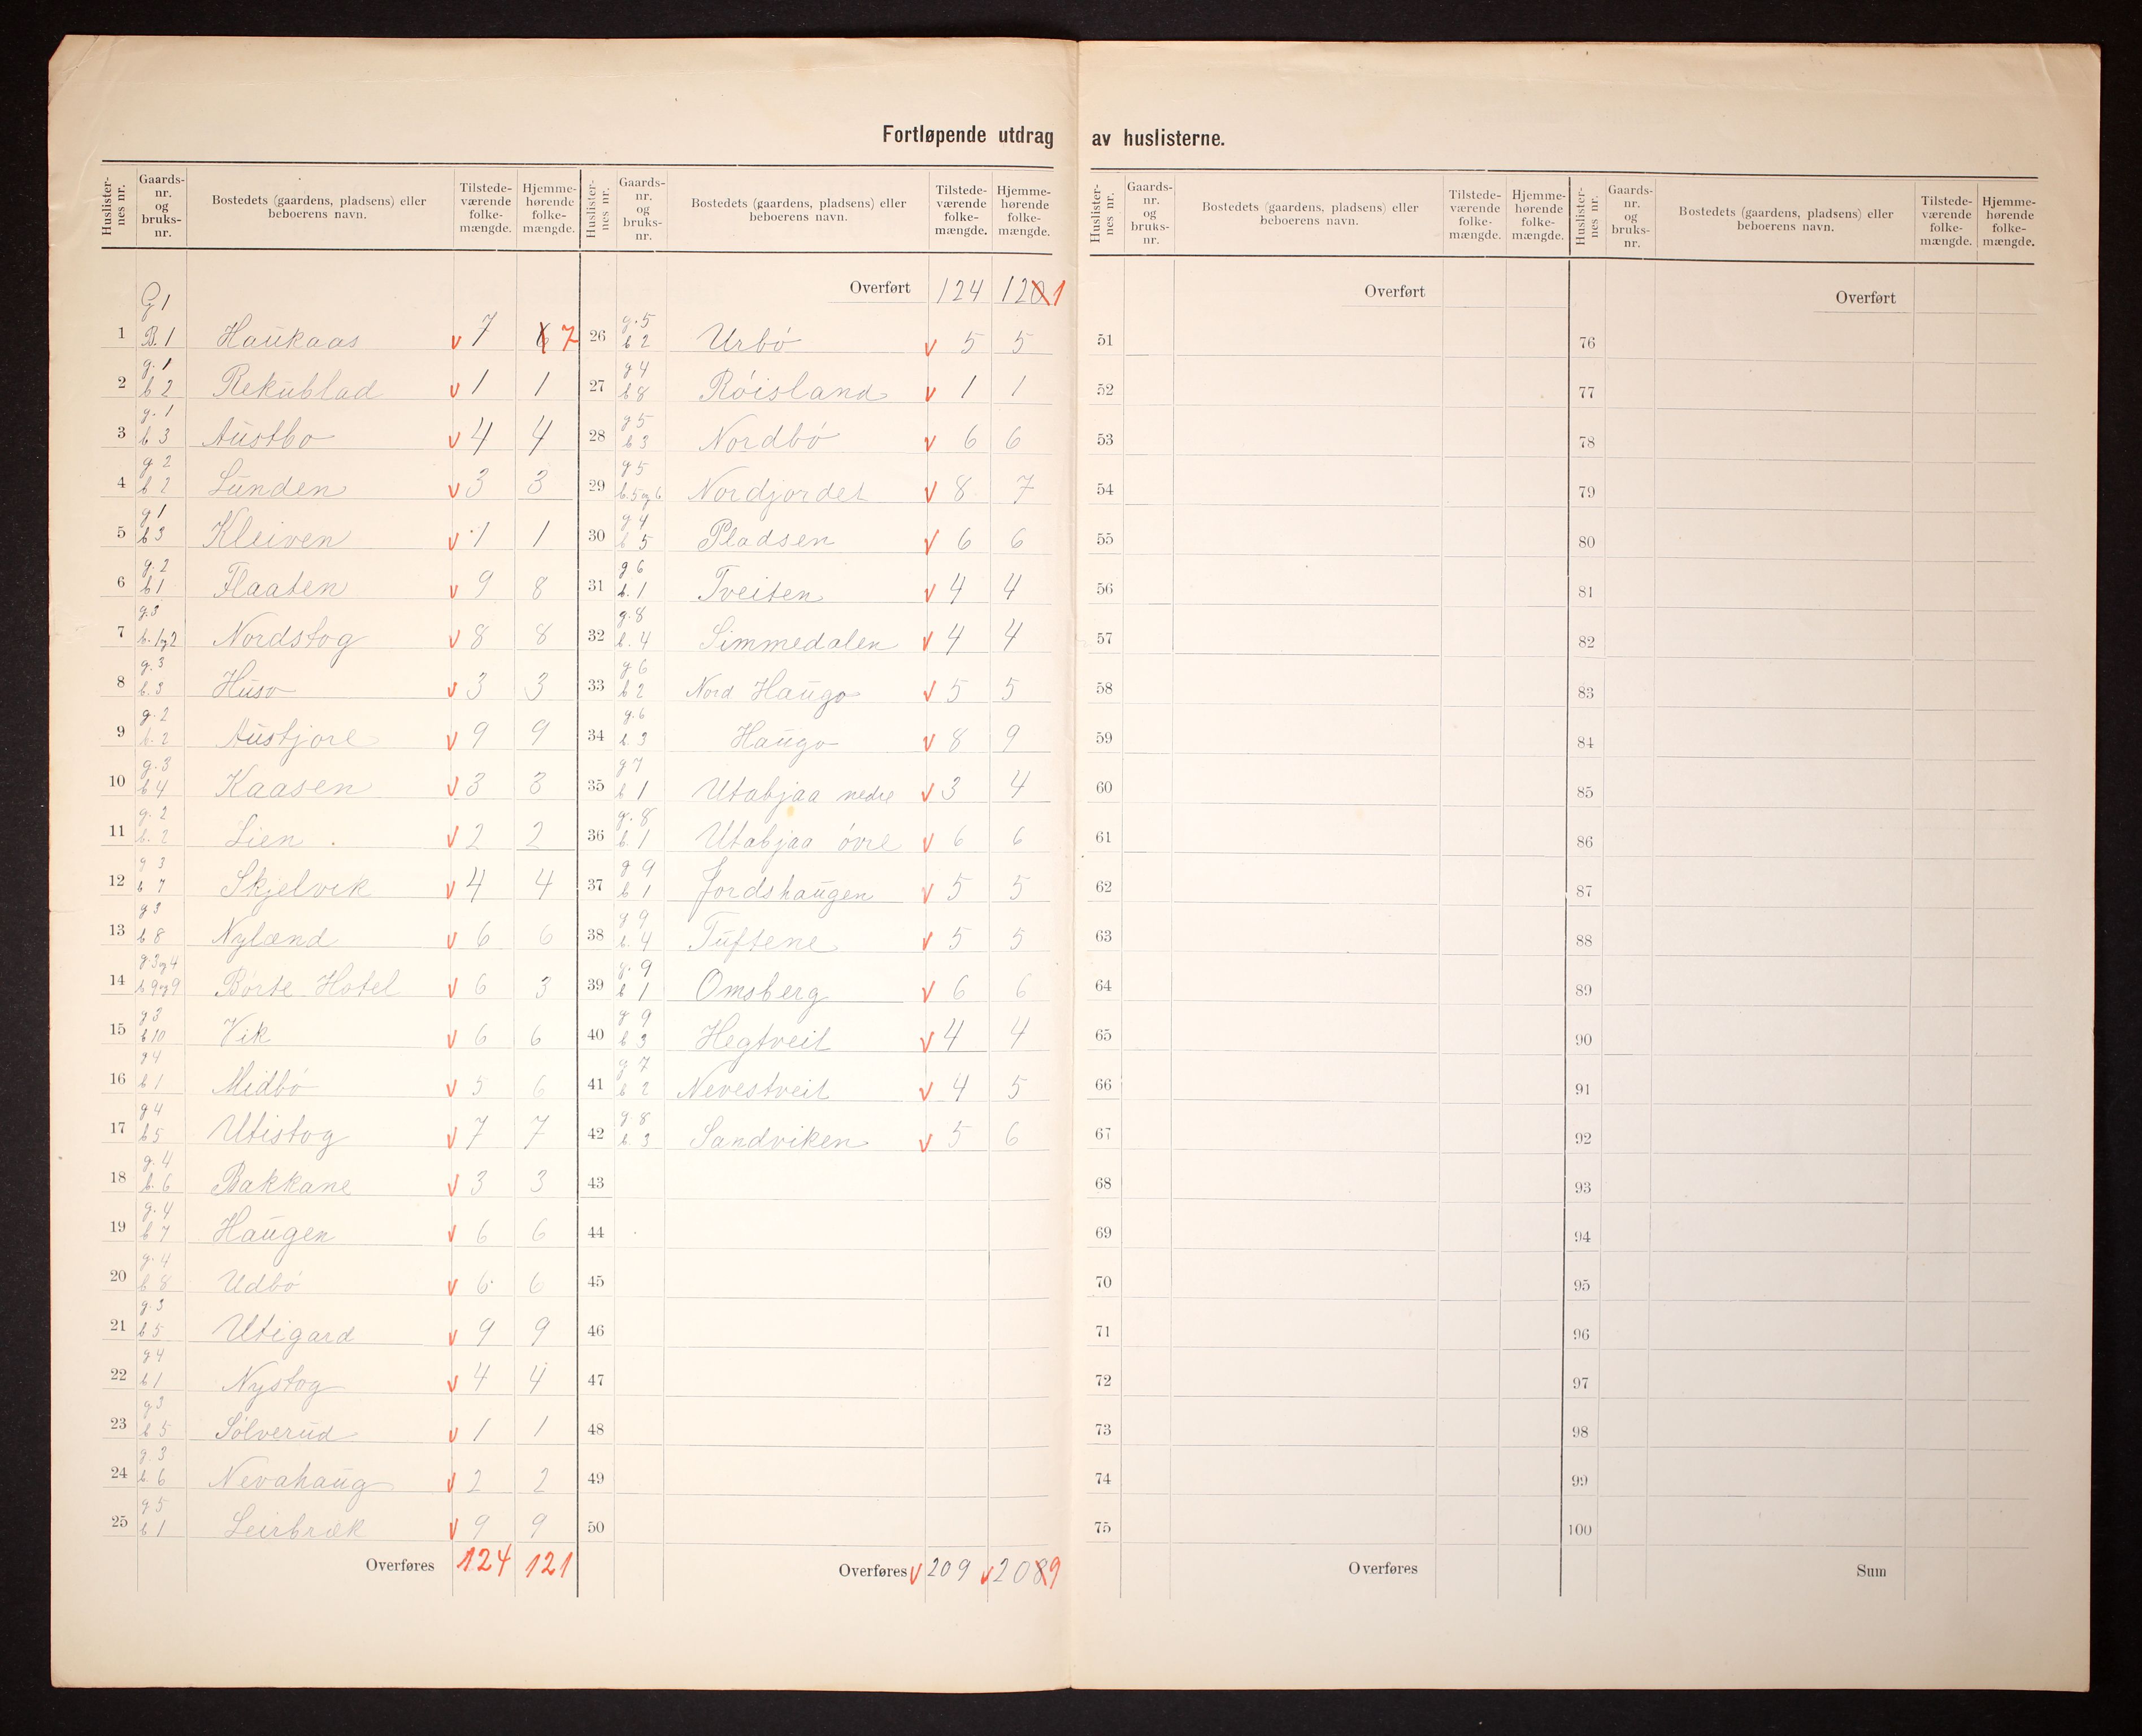 Fortløpende utdrag av huslisterne.
Huslisternes nr. Gaards-nr. og bruks-nr. Bostedets (gaardens, pladsens) eller beboerens navn. Tilstedeværende folkemængde. Hjemmehørende folkemængde.
G 1
1 B. 1 Haukaas v 7 6 7
g. 1
2 b 2 Rekublad v 1 1
g. 1
3 b 3 Austbo v 4 4
g. 2
4 b 2 Lunden v 3 3
g 1
5 b 3 Kleiven v 1 1
g. 2
6 b 1 Flaaten v 9 8
g. 3
7 b. 1 og 2 Nordstog v 8 8
g. 3
8 b. 3 Huso v 3 3
g. 2
9 b. 2 Austjore v 9 9
g. 3
10 b 4 Kaasen v 3 3
g. 2
11 b. 2 Lien v 2 2
g 3
12 b 7 Skjelvik v 4 4
g 3
13 b 8 Nylænd v 6 6
g. 3 og 4
14 b 9 og 9 Börte Hotel v 6 3
g 3
15 b 10 Vik v 6 6
g 4
16 b 1 Midbó v 5 6
g 4
17 b 5 Utistog v 7 7
g. 4
18 b. 6 Bakkane v 3 3
g. 4
19 b 7 Haugen v 6 6
g. 4
20 b 8 Udbó v 6 6
g. 3
21 b 5 Utigard v 9 9
g 4
22 b 1 Nystog v 4 4
g 3
23 b 5 Sólverud v 1 1
g. 3
24 b. 6 Nevahaug v 2 2
g 5
25 b 1 Leirbræk v 9 9
Overføres 124 121
Huslisternes nr. Gaards-nr. og bruks-nr. Bostedets (gaardens, pladsens) eller beboerens navn. Tilstedeværende folkemængde. Hjemmehørende folkemængde.
Overført 124 120 1
g. 5
26 b 2 Urbó v 5 5
g 4
27 b 8 Róisland v 1 1
g 5
28 b 3 Nordbó v 6 6
g 5
29 b. 5 og 6 Nordjordet v 8 7
g 4
30 b 5 Pladsen v 6 6
g 6
31 b. 1 Tveiten v 4 4
g. 8
32 b. 4 Simmedalen v 4 4
g 6
33 b 2 Nord Haugo v 5 5
g. 6
34 b. 3 Haugo v 8 9
g 7
35 b 1 Utabjaa nedre v 3 4
g. 8
36 b. 1 Utabjaa óvre v 6 6
g 9
37 b 1 Jordshaugen v 5 5
g 9
38 b. 4 Tuftene v 5 5
g. 9
39 b 1 Omsberg v 6 6
g 9
40 b 3 Hegtveit v 4 4
g 7
41 b 2 Nevestveit v 4 5
g. 8
42 b. 3 Sandviken v 5 6
43
44
45
46
47
48
49
50
Overføres v 209 v 208 9
Huslisternes nr. Gaards-nr. og bruks-nr. Bostedets (gaardens, pladsens) eller beboerens navn. Tilstedeværende folkemængde. Hjemmehørende folkemængde.
Overført
51
52
53
54
55
56
57
58
59
60
61
62
63
64
65
66
67
68
69
70
71
72
73
74
75
Overføres
Huslisternes nr. Gaards-nr. og bruks-nr. Bostedets (gaardens, pladsens) eller beboerens navn. Tilstedeværende folkemængde. Hjemmehørende folkemængde.
Overført
76
77
78
79
80
81
82
83
84
85
86
87
88
89
90
91
92
93
94
95
96
97
98
99
100
Sum